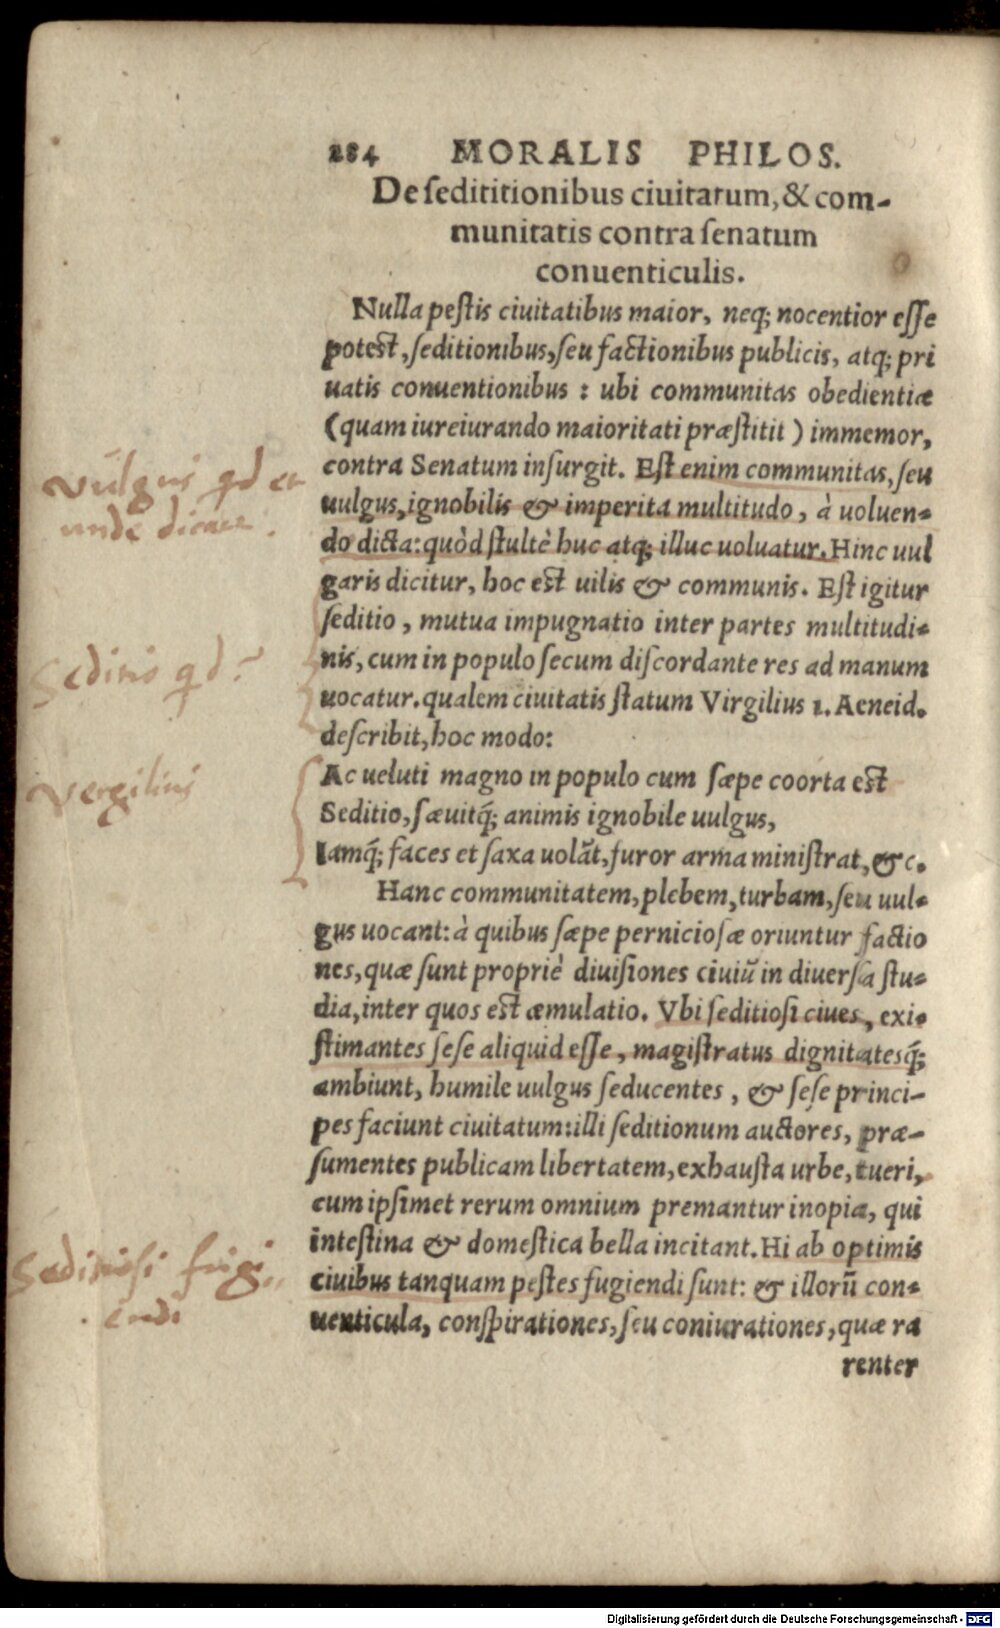 284 MORALIS PHILOS.
De sedititionibus ciuitatum, & com-
munitatis contra senatum
conuenticulis.
Nulla pestis ciuitatibus maior, neq; nocentior esse
potest, seditionibus, seu factionibus publicis, atq; pri
uatis conuentionibus : ubi communitas obedientiæ
(quam iureiurando maioritati præstitit ) immemor,
contra Senatum insurgit. Est enim communitas, seu
uulgus, ignobilis & imperita multitudo, à uoluen-
do dicta: quòd stultè huc atq; illuc uoluatur. Hinc uul
garis dicitur, hoc est uilis & communis. Est igitur
seditio, mutua impugnatio inter partes multitudi-
nis, cum in populo secum discordante res ad manum
uocatur. qualem ciuitatis statum Virgilius 1. Aeneid.
describit, hoc modo:
Ac ueluti magno in populo cum sæpe coorta est
Seditio, sæuitq́; animis ignobile uulgus,
Iamq́; faces et saxa uolãt, furor arma ministrat, &c.
Hanc communitatem, plebem, turbam, seu uul-
gus uocant: à quibus sæpe perniciosæ oriuntur factio
nes, quæ sunt propriè diuisiones ciuiũ in diuersa stu-
dia, inter quos est æmulatio. Vbi seditiosi ciues, exi-
stimantes sese aliquid esse, magistratus dignitatesq́;
ambiunt, humile uulgus seducentes, & sese princi-
pes faciunt ciuitatum: illi seditionum auctores, præ-
sumentes publicam libertatem, exhausta urbe, tueri,
cum ipsimet rerum omnium premantur inopia, qui
intestina & domestica bella incitant. Hi ab optimis
ciuibus tanquam pestes fugiendi sunt: & illorũ con-
uenticula, conspirationes, seu coniurationes, quæ ra
renter
vulgus qd et
unde dicatur.
Seditio qd?
Vergilius
Seditiosi fugi
endi
Digitalisierung gefördert durch die Deutsche Forschungsgemeinschaft - DFG